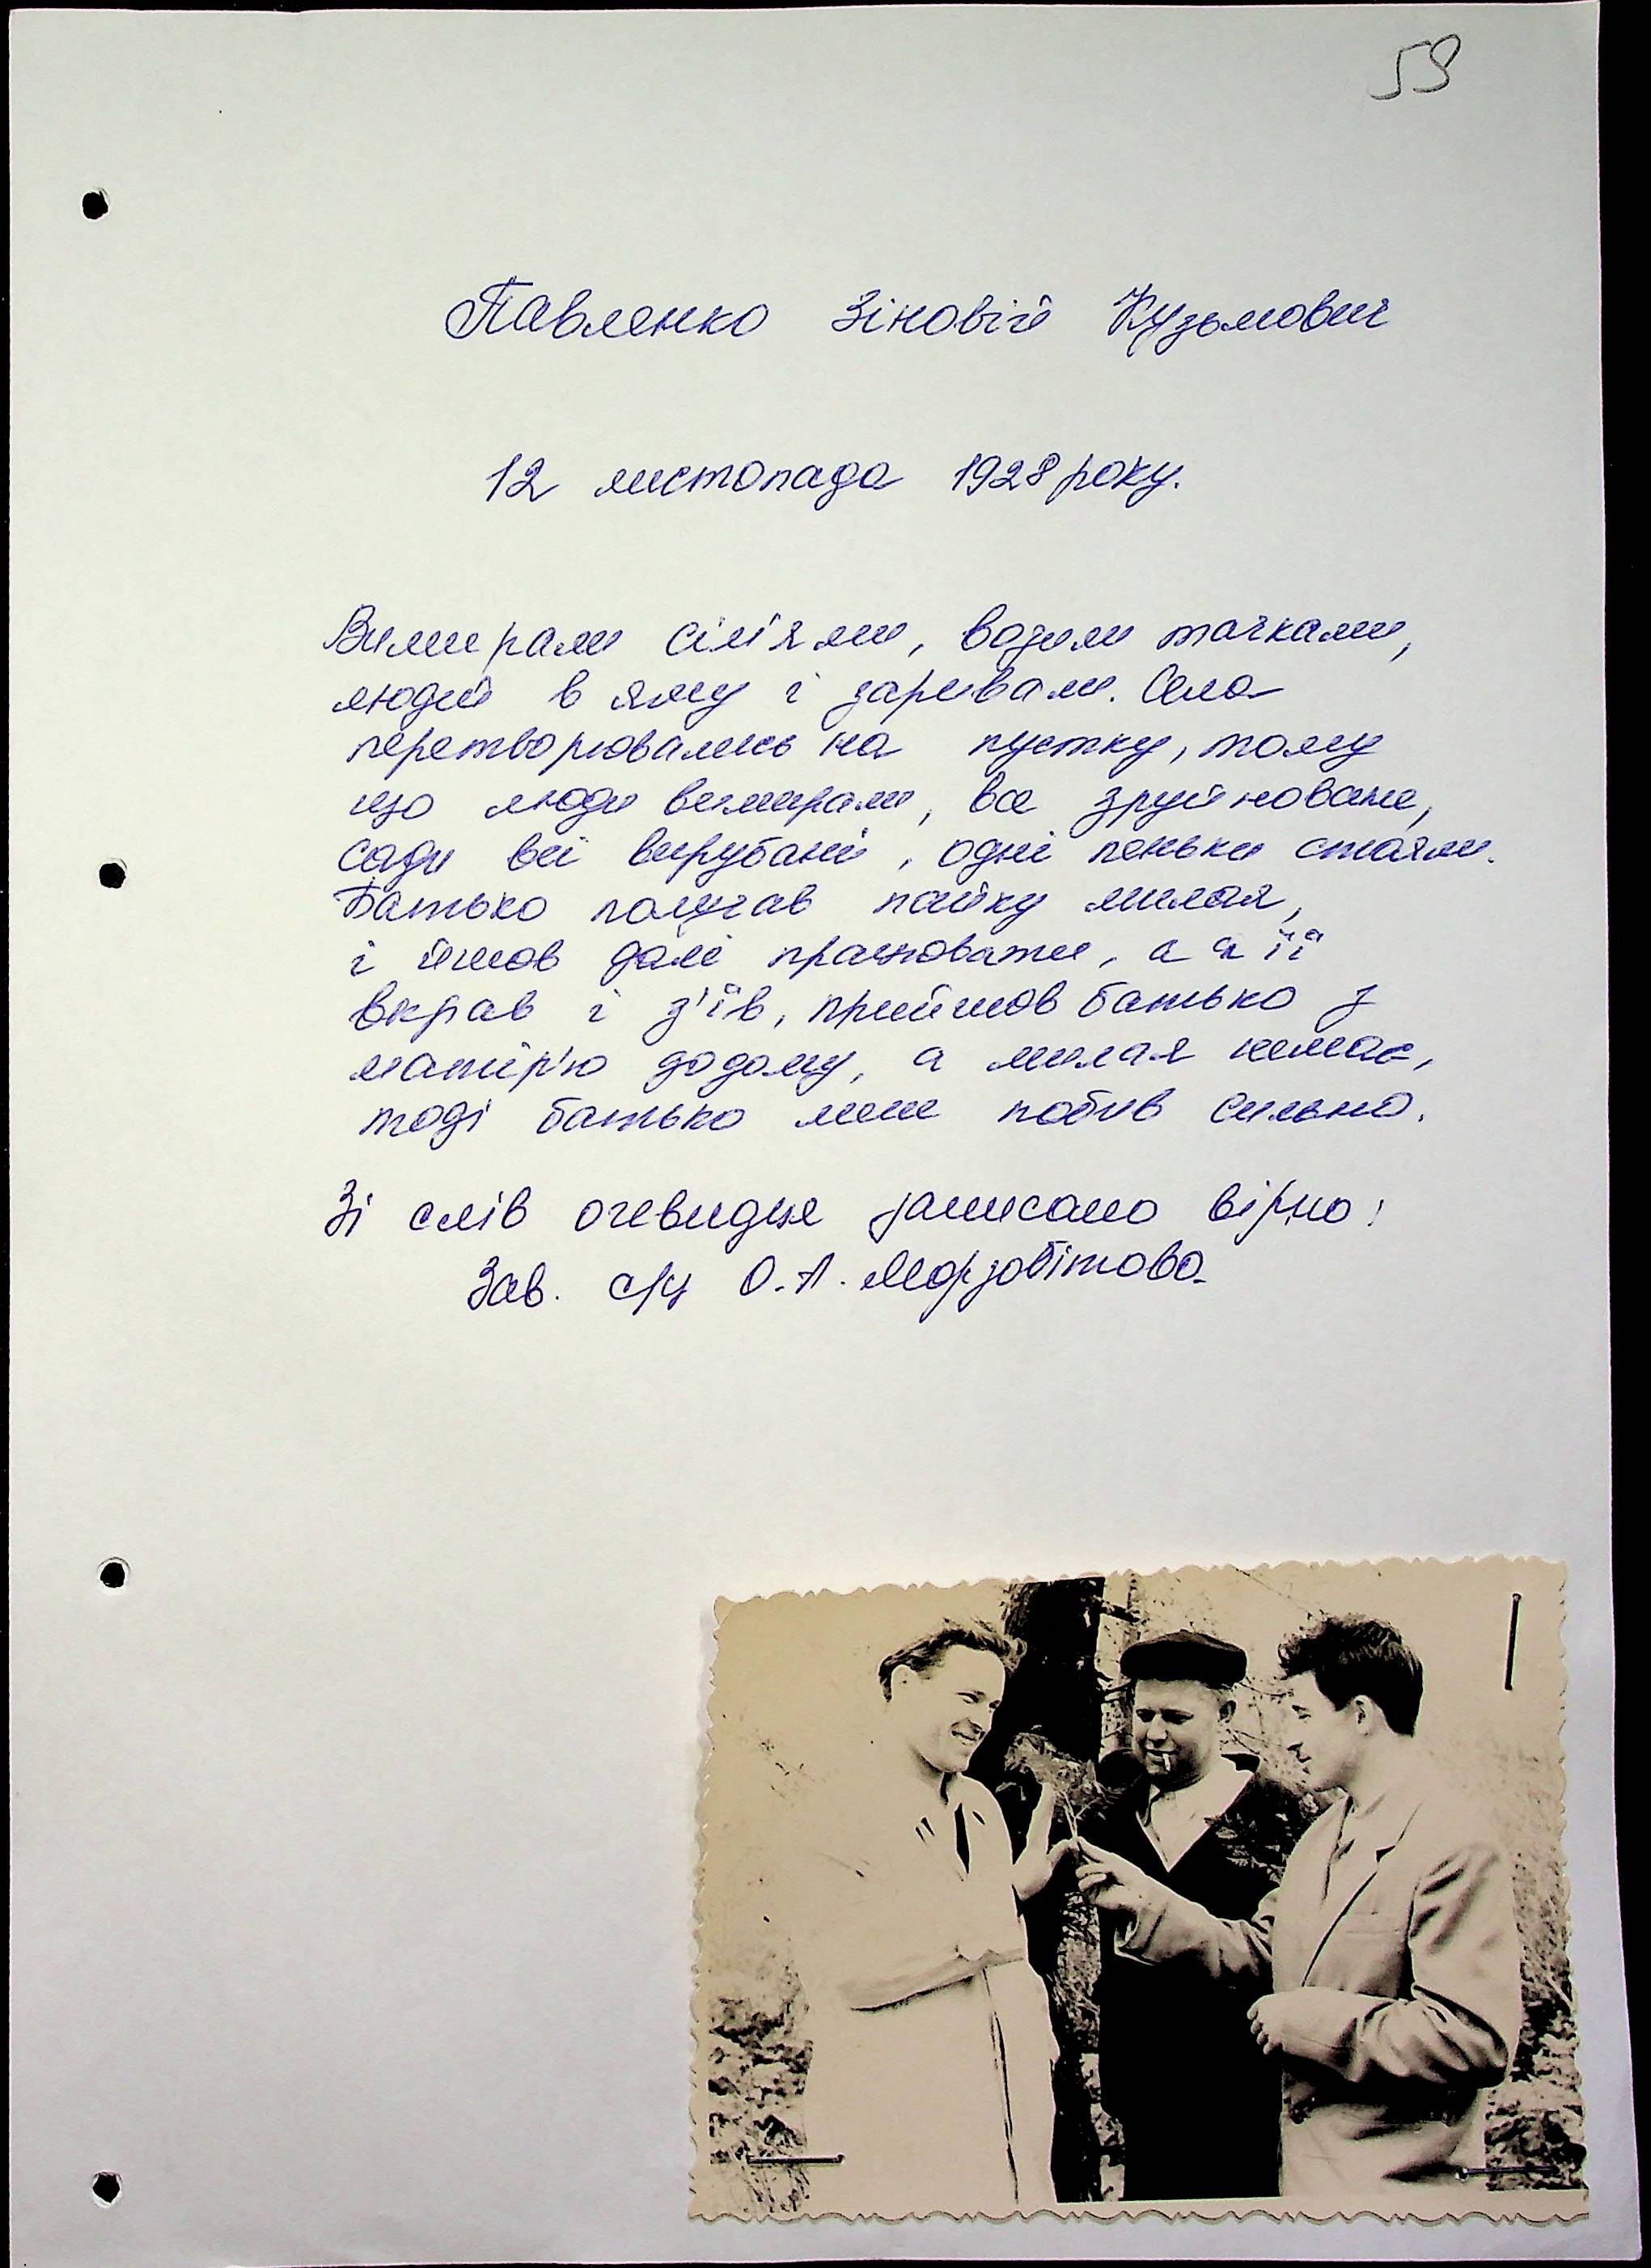 59
Павленко Зіновій Кузьмович
12 листопада 1928 року.
Вимирали сім'ями, возили тачками,
людей в яму і заривали. Села
перетворювались на пустку, тому
що люди вимирали, все зруйноване,
сади всі вирубані, одні пеньки стояли.
Батько получав пайку милая,
і йшов далі працювати, а я її
вкрав і з'їв, прийшов батько з
матір'ю додому, а милая немає,
тоді батько мене побив сильно.
Зі слів очевидця записано вірно:
Зав. с/ц О.А. Морзабітова